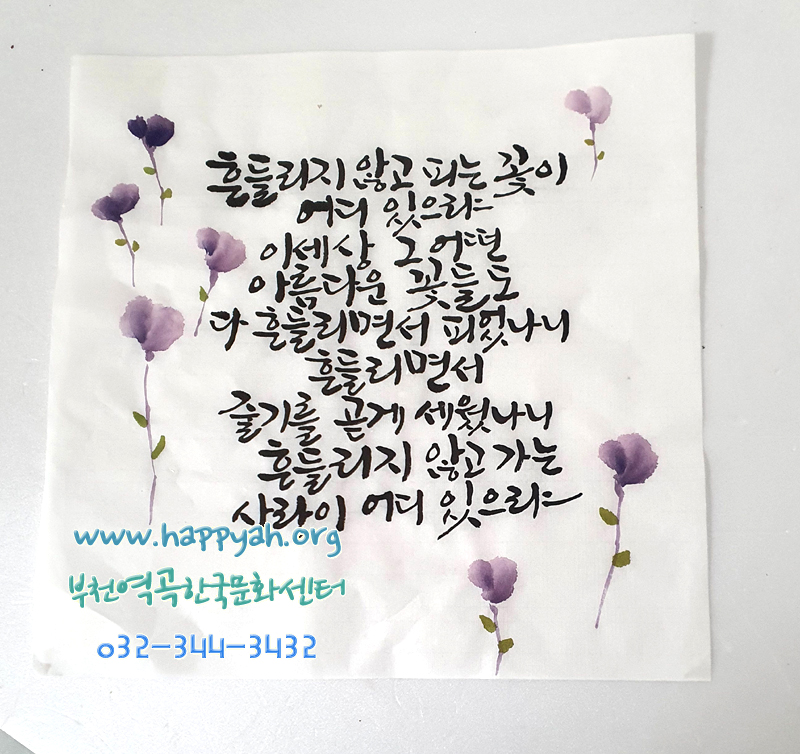 흔들리지 않고 피는 꽃이
어디 있으랴
이세상 그 어떤
아름다운 꽃들도
다 흔들리면서 피었나니
흔들리면서
줄기를 곧게 세웠나니
흔들리지 않고 가는
사랑이 어디 있으랴
www.happyah.org
부천역곡한국문화센터
032-344-3432